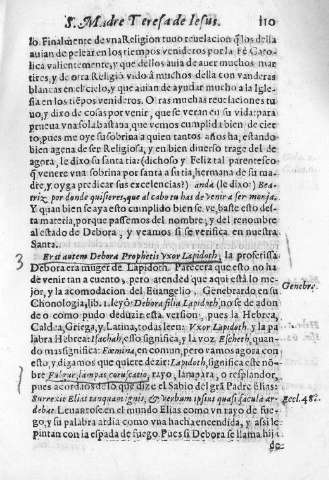 S. Madre Teresa de Iesus. 110
lo. Finalmente de vna Religion tuuo reuelacion q̃ los della
auian de pelear en los tiempos venideros por la Fè Catolica
valientemente, y que dellos auia de auer muchos martires,
y de otra Religiõ vido à muchos della con vanderas
blancas en el cielo, y que auian de ayudar mucho a la Iglesia
en los tiẽpos venideros. Otras muchas reuelaciones tuuo,
y dixo de cosas por venir, que se veran en su vida: para
prueua vna sola bastaua, que vemos cumplida bien de cierto;
pues me oye su sobrina a quien tantos años ha, estando
bien agena de ser Religiosa, y en bien diuerso trage del de
agora, le dixo su santa tia: (dichoso y Feliz tal parentesco
q̃ venere vna sobrina por santa a su tia, hermana de su madre,
y oyga predicar sus excelencias?) anda (le dixo) Beatriz
por donde quisieres, que al cabo tu has de venir a ser monja.
Y quan bien se aya esto cumplido bien se ve, baste esto desta
materia, porque passemos del nombre, y del renombre
al estado de Debora, y veamos si se verifica en nuestra
Santa.
3 Erat autem Debora Prophetis Vxor Lapidoth, la profetissa
Debora era muger de Lapidoth. Parecerà que esto no ha
de venir tan a cuento, pero atended que aqui està lo mejor,
y la acomodacion del Euangelio, Genebrardo en su
Genebr.
Chonologia, lib. 1. leyò: Debora filia Lapidoth, no sè de adonde
o como pudo deduzir esta version, pues la Hebrea,
Caldea, Griega, y Latina, todas leen: Vxor Lapidoth, y la palabra
Hebrea: Isachah, esso significa, y la voz, Escheth, quando
mas significa: Fœmina, en comun, pero vamos agora con
esto, y digamos que quiere dezir: Lapidoth, significa este nõbre
Fulcur, lampas, coruscatio, rayo, lampara, o resplandor,
pues acordaos de lo que dize el Sabio del grã Padre Elias:
Surrexit Elias tanquam ignis, & verbum ipsius quasi facula ardebat.
Eccl. 48.
Leuantose en el mundo Elias como vn rayo de fuego,
y su palabra ardia como vna hacha encendida, y assi le
pintan con la espada de fuego. Pues si Debora se llama hija
de